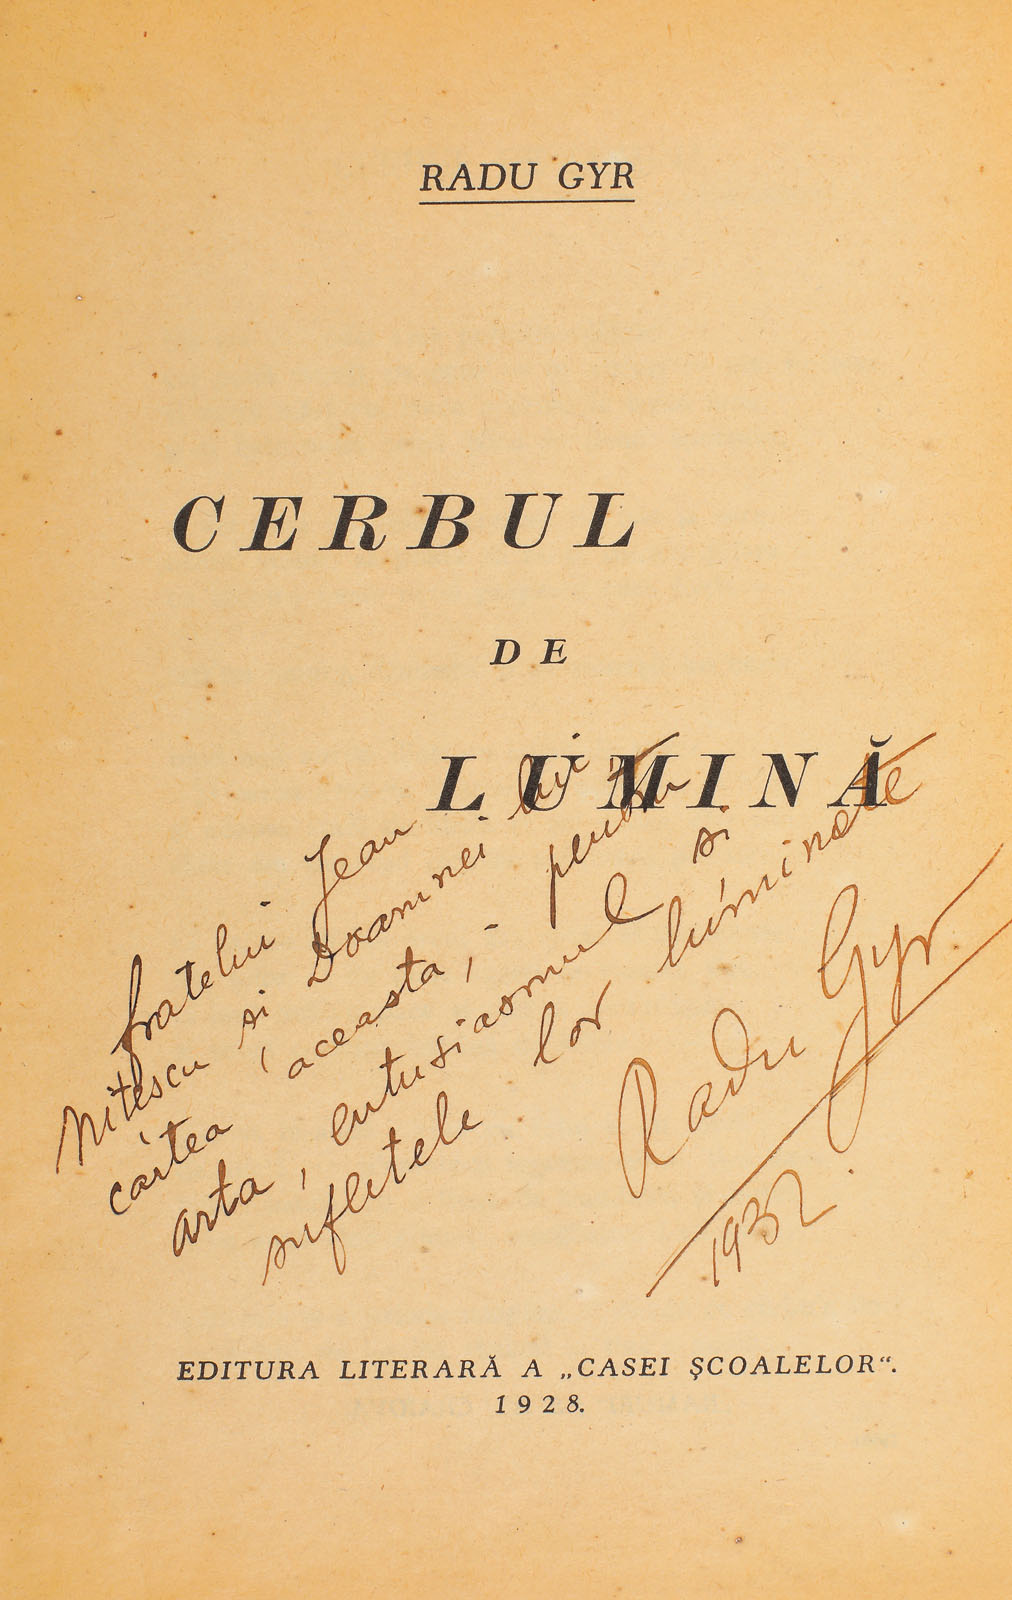 RADU GYR
CERBUL
DE
LUMINĂ
fratelui Jean
Nitescu si Doamnei lui
cartea aceasta, - pentru
arta, entusiasmul si
sufletele lor luminate
Radu Gyr
1932
EDITURA LITERARĂ A „CASEI ȘCOALELOR“.
1928.